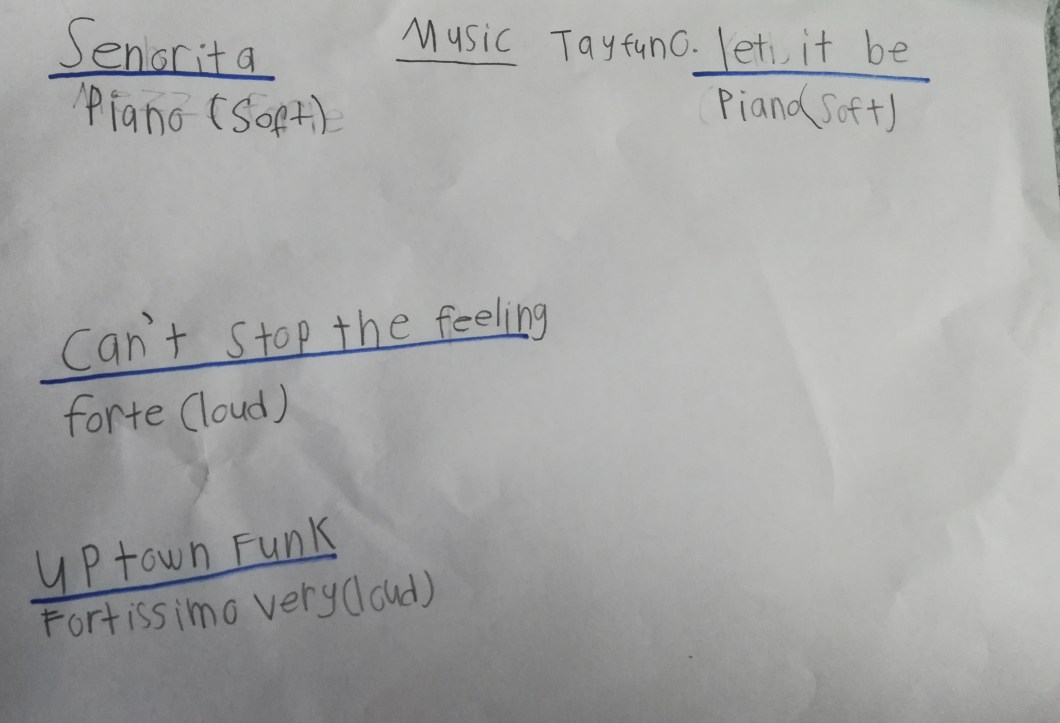 Senorita
Piano (Soft)
Music Tayfun O.
let it be
Piano (Soft)
Can't stop the feeling
forte (loud)
UP town Funk
Fortissimo very (loud)